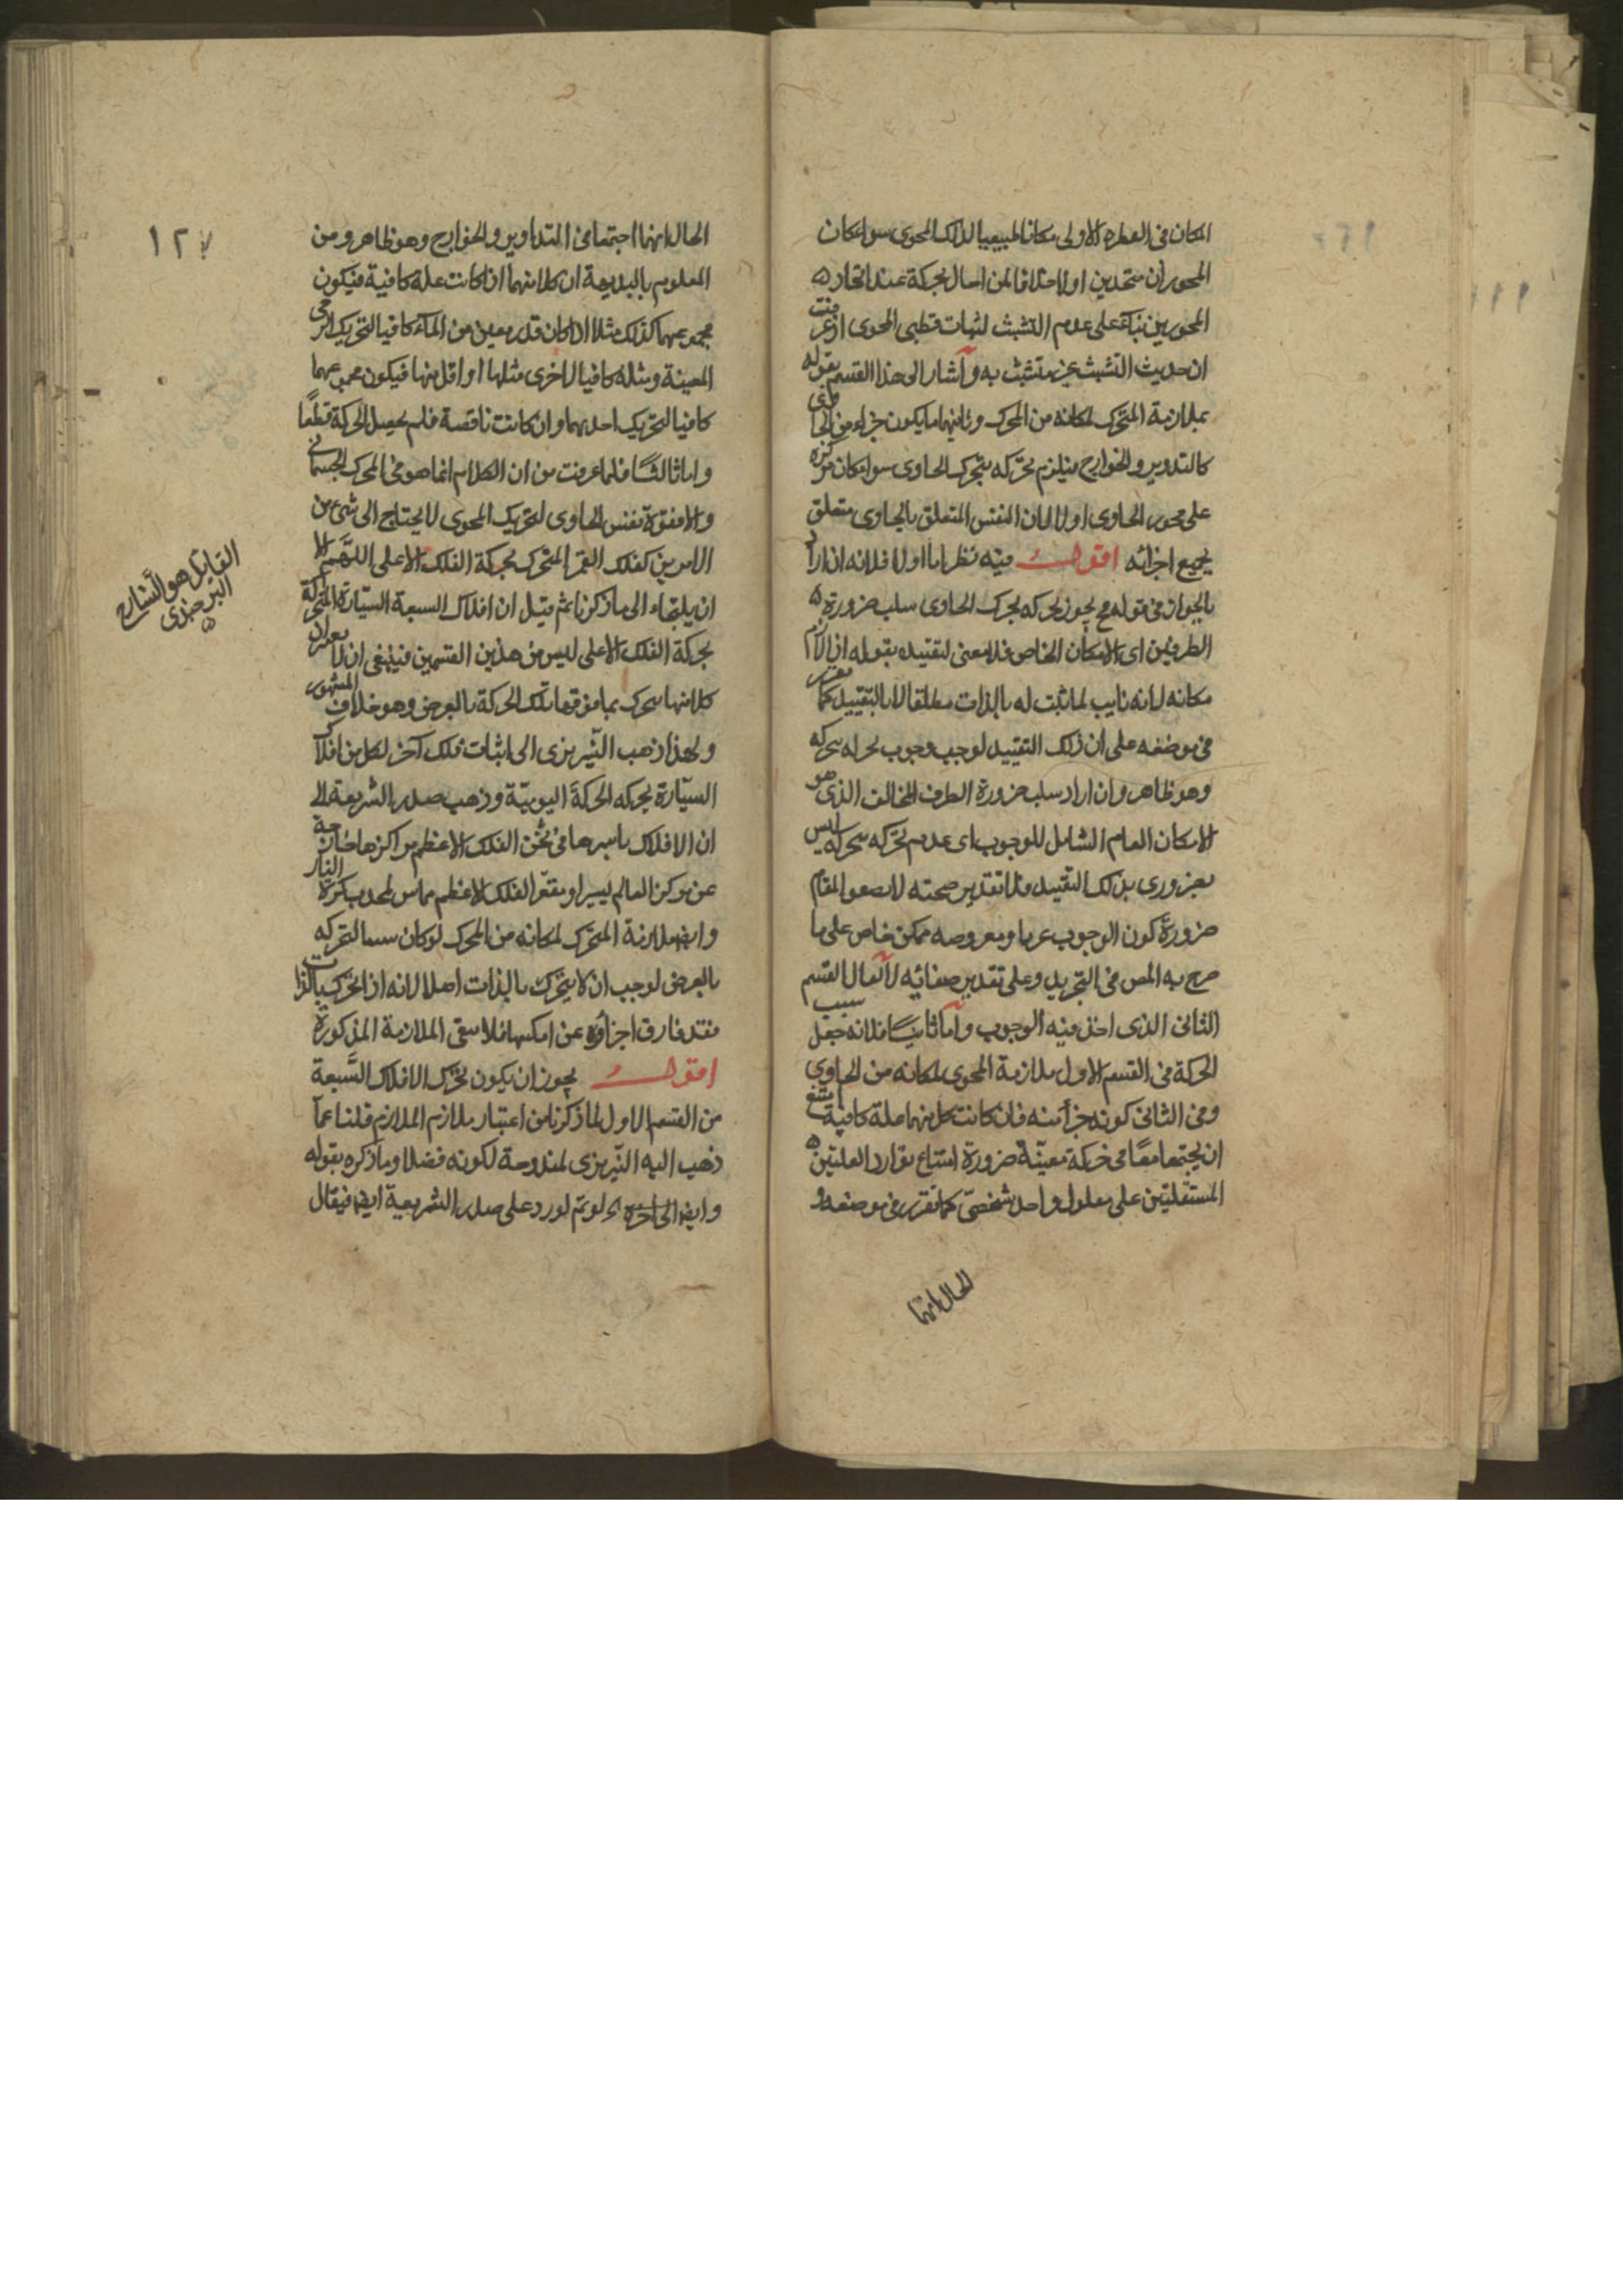 المكان فى الفطرة الاولى مكانا طبيعيا لذلك المحوى سواء كان
المحوران متحدين اولا خلافا لمن احال بحركة عند اتحاد
المحورين بناء على عدم التشبث لثبات قطبى المحوى اذ عرفت
ان حديث التشبث غير متشبث به وأشار الى هذا القسم بقوله
بملازمة المتحرك لمكانه من المحرك وثانيهما ما يكون جزاء من الحاوى
كالتدوير والخوارج فيلزم تحركه بتحرك الحاوى سواء كان مركزه
على محور الحاوى اولا لان النفس المتعلق بالحاوى متعلق
بجميع اجزائه اقول فيه نظر اما اولا فلانه ان اراد
بالجواز فى قوله مح يجوز تحركه بحرك الحاوى سلب ضرورة
الطرفين اى الامكان الخاص فلا معنى لتقييده بقوله اذ لازم
مكانه لانه نايب لما ثبت له بالذات مطلقا لا بالتقييد كما تقرر
فى موضعه على ان ذلك التقييد لوجب وجوب تحركه بتحركه
وهو ظاهر وان اراد سلب ضرورة الطرف المخالف الذى هو
الامكان العام الشامل للوجوب اى عدم تحركه بتحركه ليس
بضرورى بذلك التقييد فلا تقدير صحته لا يصفو المقام
ضرورة كون الوجوب عريا ومعروضه ممكن خاص على ما
صرح به المص فى التجريد وعلى تقدير صفائيه لا القسم
الثانى الذى اخذ فيه الوجوب وأما ثانيا فلانه جعل سبب
الحركة فى القسم الاول ملازمة المحوى لمكانه من الحاوى
وفى الثانى كونه جزأ منه فان كانت كل منهما علة كافية امتنع
ان يجتمعا معا فى حركة معينة ضرورة امتناع توارد العلتين
المستقلتين على معلول واحد شخصى كما تقرر فى موضعه و
الحال انهما
١٢٧
الحال انهما اجتمعا فى التداوير والخوارج وهو ظاهر ومن
المعلوم بالبديهة ان كلا منهما اذا كانت علة كافية فيكون
مجموعهما كذلك مثلا اذا كان قدر معين من الماء كافيا لتحريك الرحى
المعينة ومثله كافيا لاخرى مثلها او اقل منها فيكون مجموعهما
كافيا لتحريك احدهما وان كانت ناقصة فلم يحصل الحركة قطعا
واما ثالثا فلما عرفت من ان الكلام انما هو فى المحرك الجسمانى
والا فقوة نفس الحاوى لتحريك المحوى لا يحتاج الى شئ من
الامرين كفلك القمر المتحرك بحركة الفلك الاعلى اللهم الا
ان يلتجاء الى ما ذكرنا ثم قيل ان افلاك السبعة السيارة المتحركة
بحركة الفلك الاعلى ليس من هذين القسمين فينبغى ان لا يعد ان
كلا منها يتحرك بما فوقها تلك الحركة بالعرض وهو خلاف المشهور
ولهذا ذهب النيريزى الى اثبات فلك آخر لكل من افلاك
السيارة يحركه الحركة اليومية وذهب صدر الشريعة الى
ان الافلاك باسرها فى ثخن الفلك الاعظم مراكزها خارجة
عن مركز العالم يسيرا ومقعر الفلك الاعظم مماس لمحدب كرة النار
وايضا ملازمة المتحرك لمكانه من المحرك لو كان سببا لتحركه
بالعرض لوجب ان لا يتحرك بالذات اصلا لانه اذا تحرك بالذات
فقد فارق اجزاؤه عن امكنتها فلا يبقى الملازمة المذكورة
اقول يجوز ان يكون تحرك الافلاك السبعة
من القسم الاول لما ذكرنا من اعتبار ملازم الملازم قلنا عما
ذهب اليه النيريزى لمندوحة لكونه فضلا وما ذكره بقوله
وايضا الى آخره لو تم لورد على صدر الشريعة ايضا فيقال
القايل هو الشارح
البرجندى